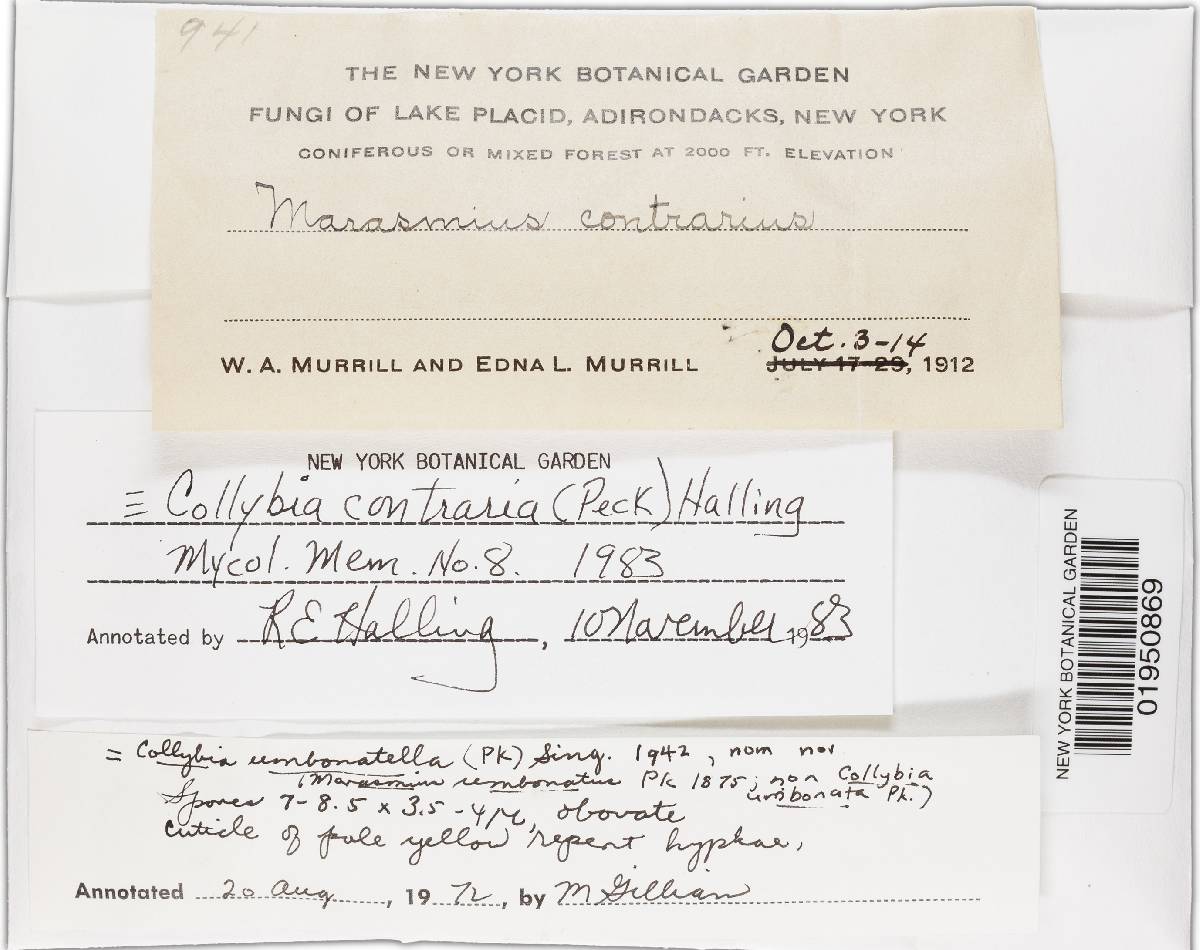 941
THE NEW YORK BOTANICAL GARDEN
FUNGI OF LAKE PLACID, ADIRONDACKS, NEW YORK
CONIFEROUS OR MIXED FOREST AT 2000 FT. ELEVATION
Marasmius contrarius
Oct. 3-14
W. A. MURRILL AND EDNA L. MURRILL JULY 17-29, 1912
NEW YORK BOTANICAL GARDEN
≡ Collybia contraria (Peck) Halling
Mycol. Mem. No. 8. 1983
Annotated by RE Halling, 10 November 1983
= Collybia umbonatella (Pk) Sing. 1942, nom nov
(Marasmius umbonatus Pk 1875; non Collybia
umbonata Pk.)
Spores 7-8.5 x 3.5-4 µ, obovate
cuticle of pale yellow repent hyphae,
Annotated 20 Aug, 1972, by M Gilliam
NEW YORK BOTANICAL GARDEN
01950869